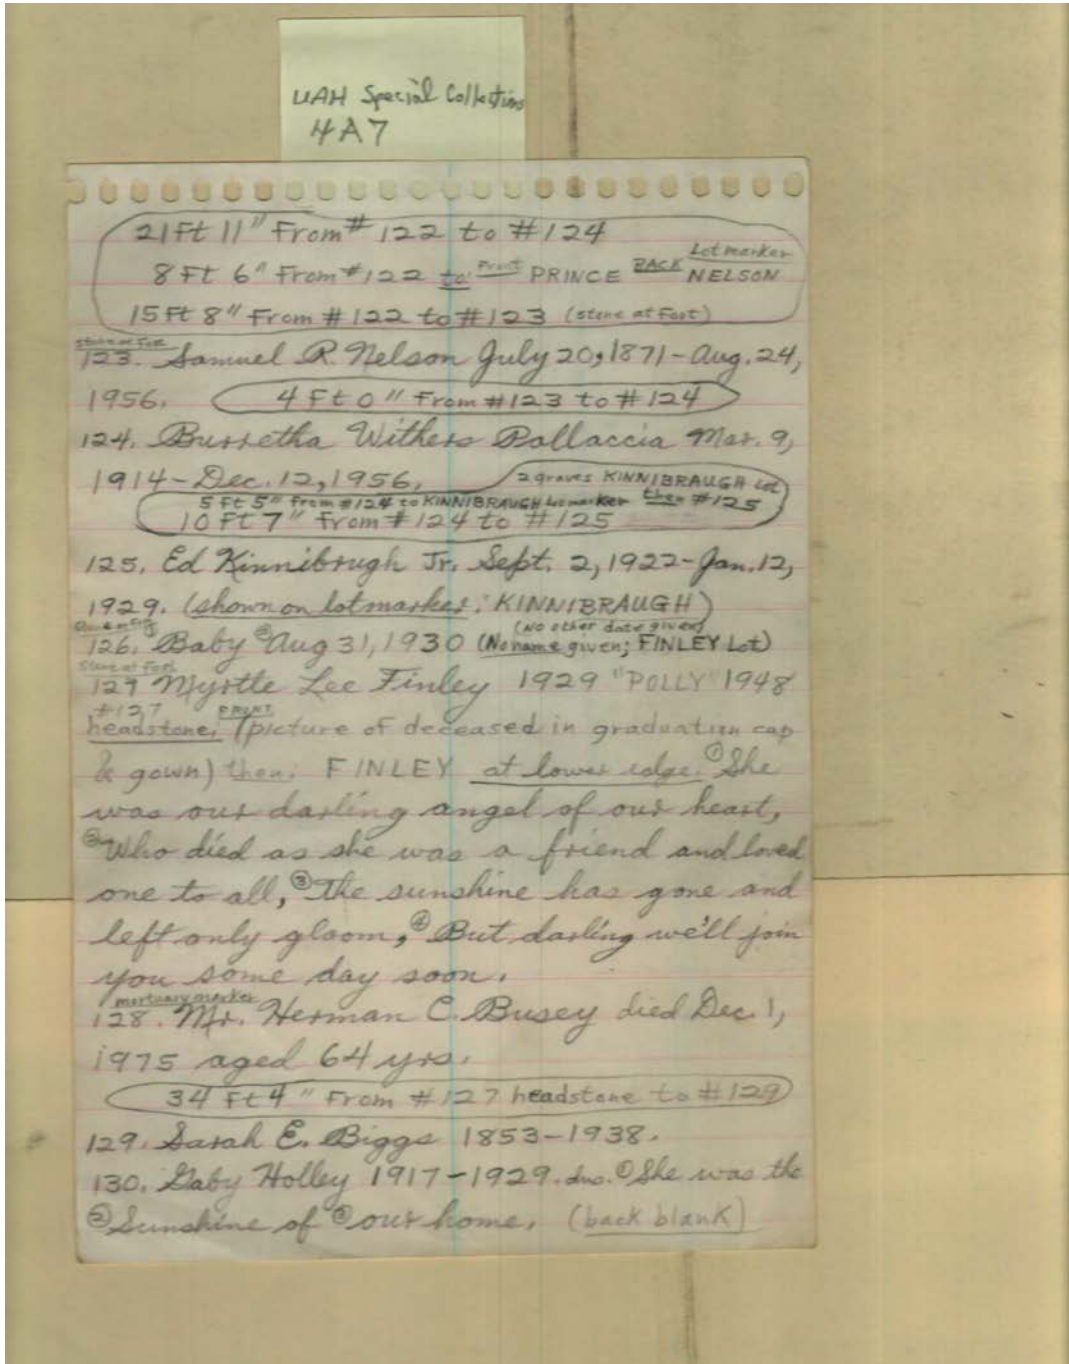 UAH Special Collections
4A7
21Ft 11" From # 122 to #124
Lot marker
8 Ft 6" From #122 to: Front PRINCE BACK NELSON
15 Ft 8" From #122 to #123 (stone at Foot)
stone at Foot
123. Samuel R. Nelson July 20, 1871-Aug. 24,
1956. 4 Ft 0" From #123 to #124
124. Burretha Withers Pallaccia Mar. 9,
1914-Dec. 12, 1956. 2 graves KINNIBRAUGH Lot
5 Ft 5" from #124 to KINNIBRAUGH Lot marker then #125
10 Ft 7" From #124 to #125
125. Ed Kinnibrugh Jr. Sept. 2, 1922-Jan. 12,
1929. (shown on lot marker: KINNIBRAUGH)
(No other date given)
126. Baby Aug 31, 1930 (No name given; FINLEY Lot)
Stone at Foot
127 Myrtle Lee Finley 1929 "POLLY" 1948
#127 FRONT
headstone, (picture of deceased in graduation cap
& gown) then: FINLEY at lower edge: ① She
was our darling angel of our heart,
② Who died as she was a friend and loved
one to all, ③ The sunshine has gone and
left only gloom, ④ But darling we'll join
you some day soon.
mortuary marker
128. Mr. Herman C. Busey died Dec. 1,
1975 aged 64 yrs.
34 Ft 4" From #127 headstone to #129
129. Sarah E. Biggs 1853-1938.
130. Gaby Holley 1917-1929. ins. ① She was the
② Sunshine of ③ our home. (back blank)